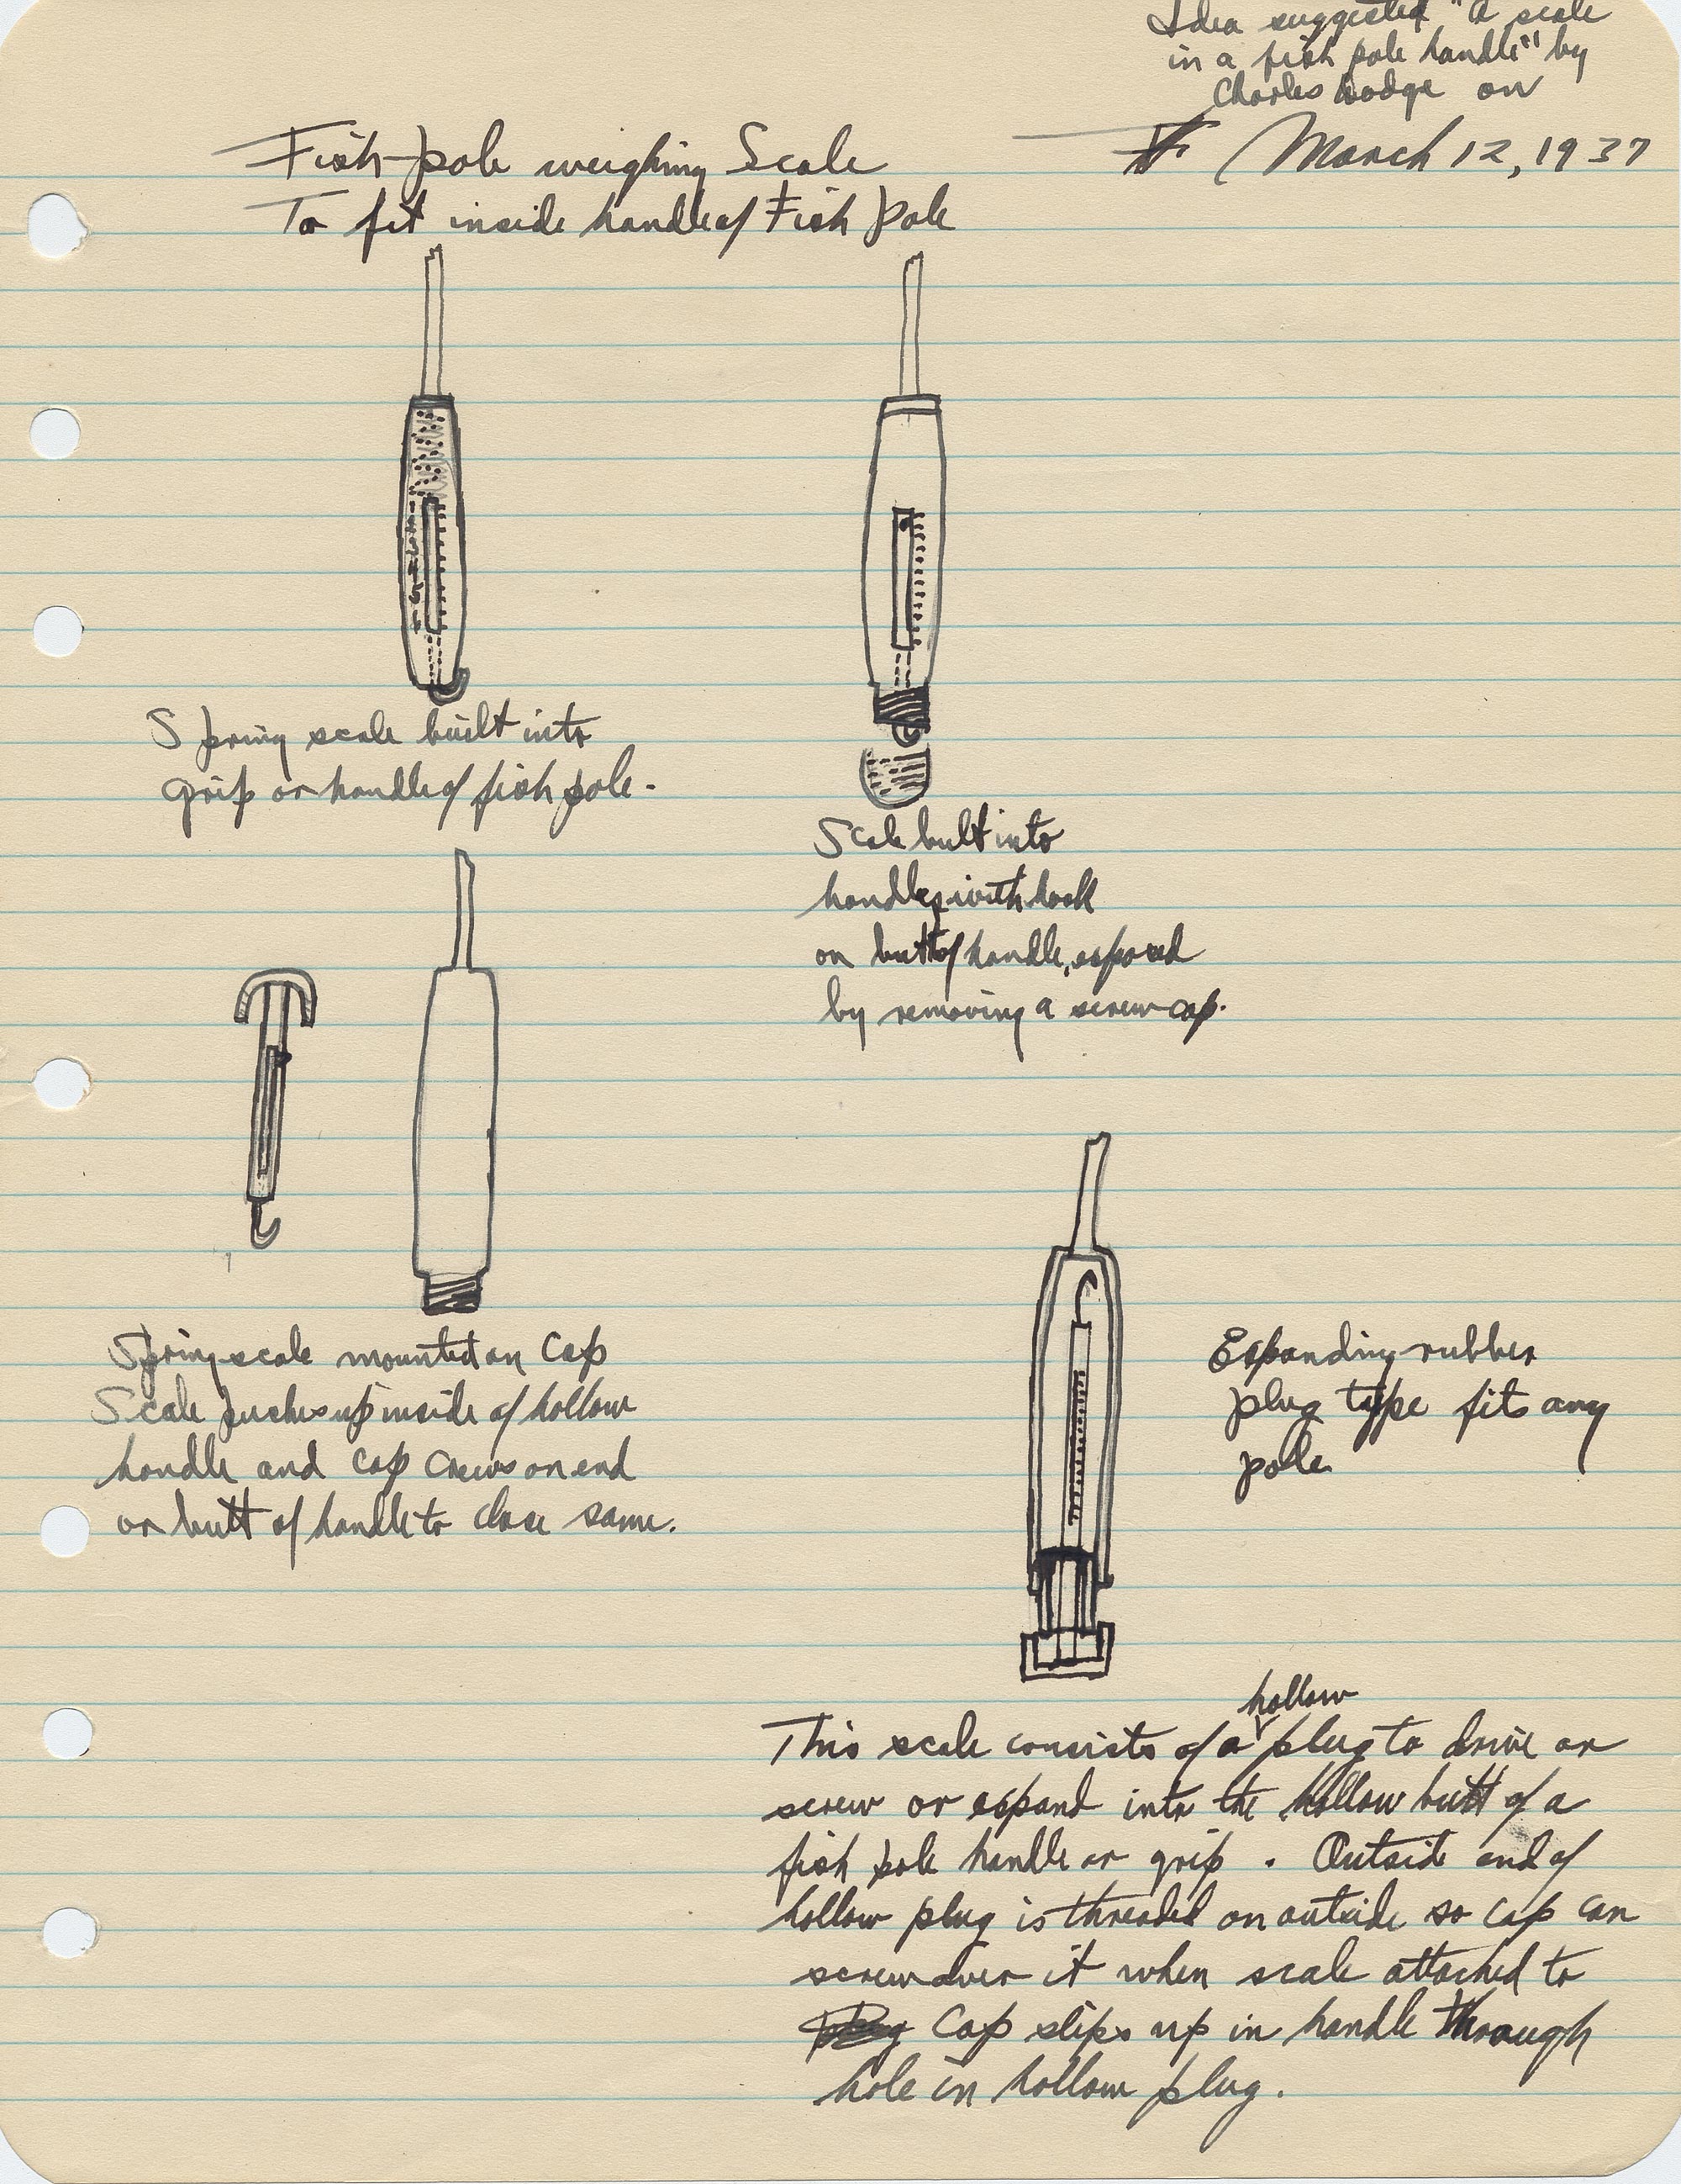 Idea suggested "A scale
in a fish pole handle" by
Charles Dodge on
March 12, 1937
Fish-pole weighing Scale
To fit inside handle of Fish Pole
Spring scale built into
grip or handle of fish pole.
Scale built into
handles, with hook
on butt of handle, exposed
by removing a screw cap.
Spring scale mounted on Cap
Scale pushes up inside of hollow
handle and cap crews on end
or butt of handle to close same.
Expanding rubber
plug type fits any
pole
hollow
This scale consists of a plug to drive or
screw or expand into the hollow butt of a
fish pole handle or grip. Outside end of
hollow plug is threaded on outside so cap can
screw over it when scale attached to
Cap slips up in handle through
hole in hollow plug.